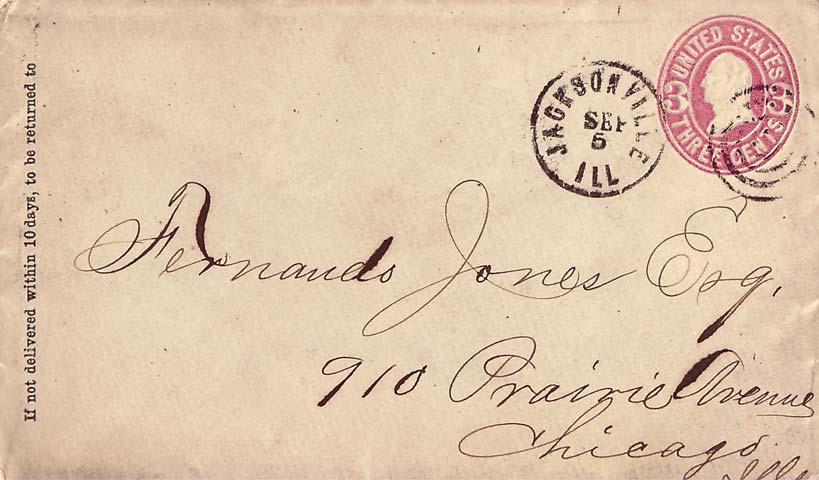 If not delivered within 10 days, to be returned to
JACKSONVILLE
SEP
5
ILL
UNITED STATES
3 3
THREE CENTS.
Fernando Jones Esq.
910 Prairie Avenue
Chicago
Ill